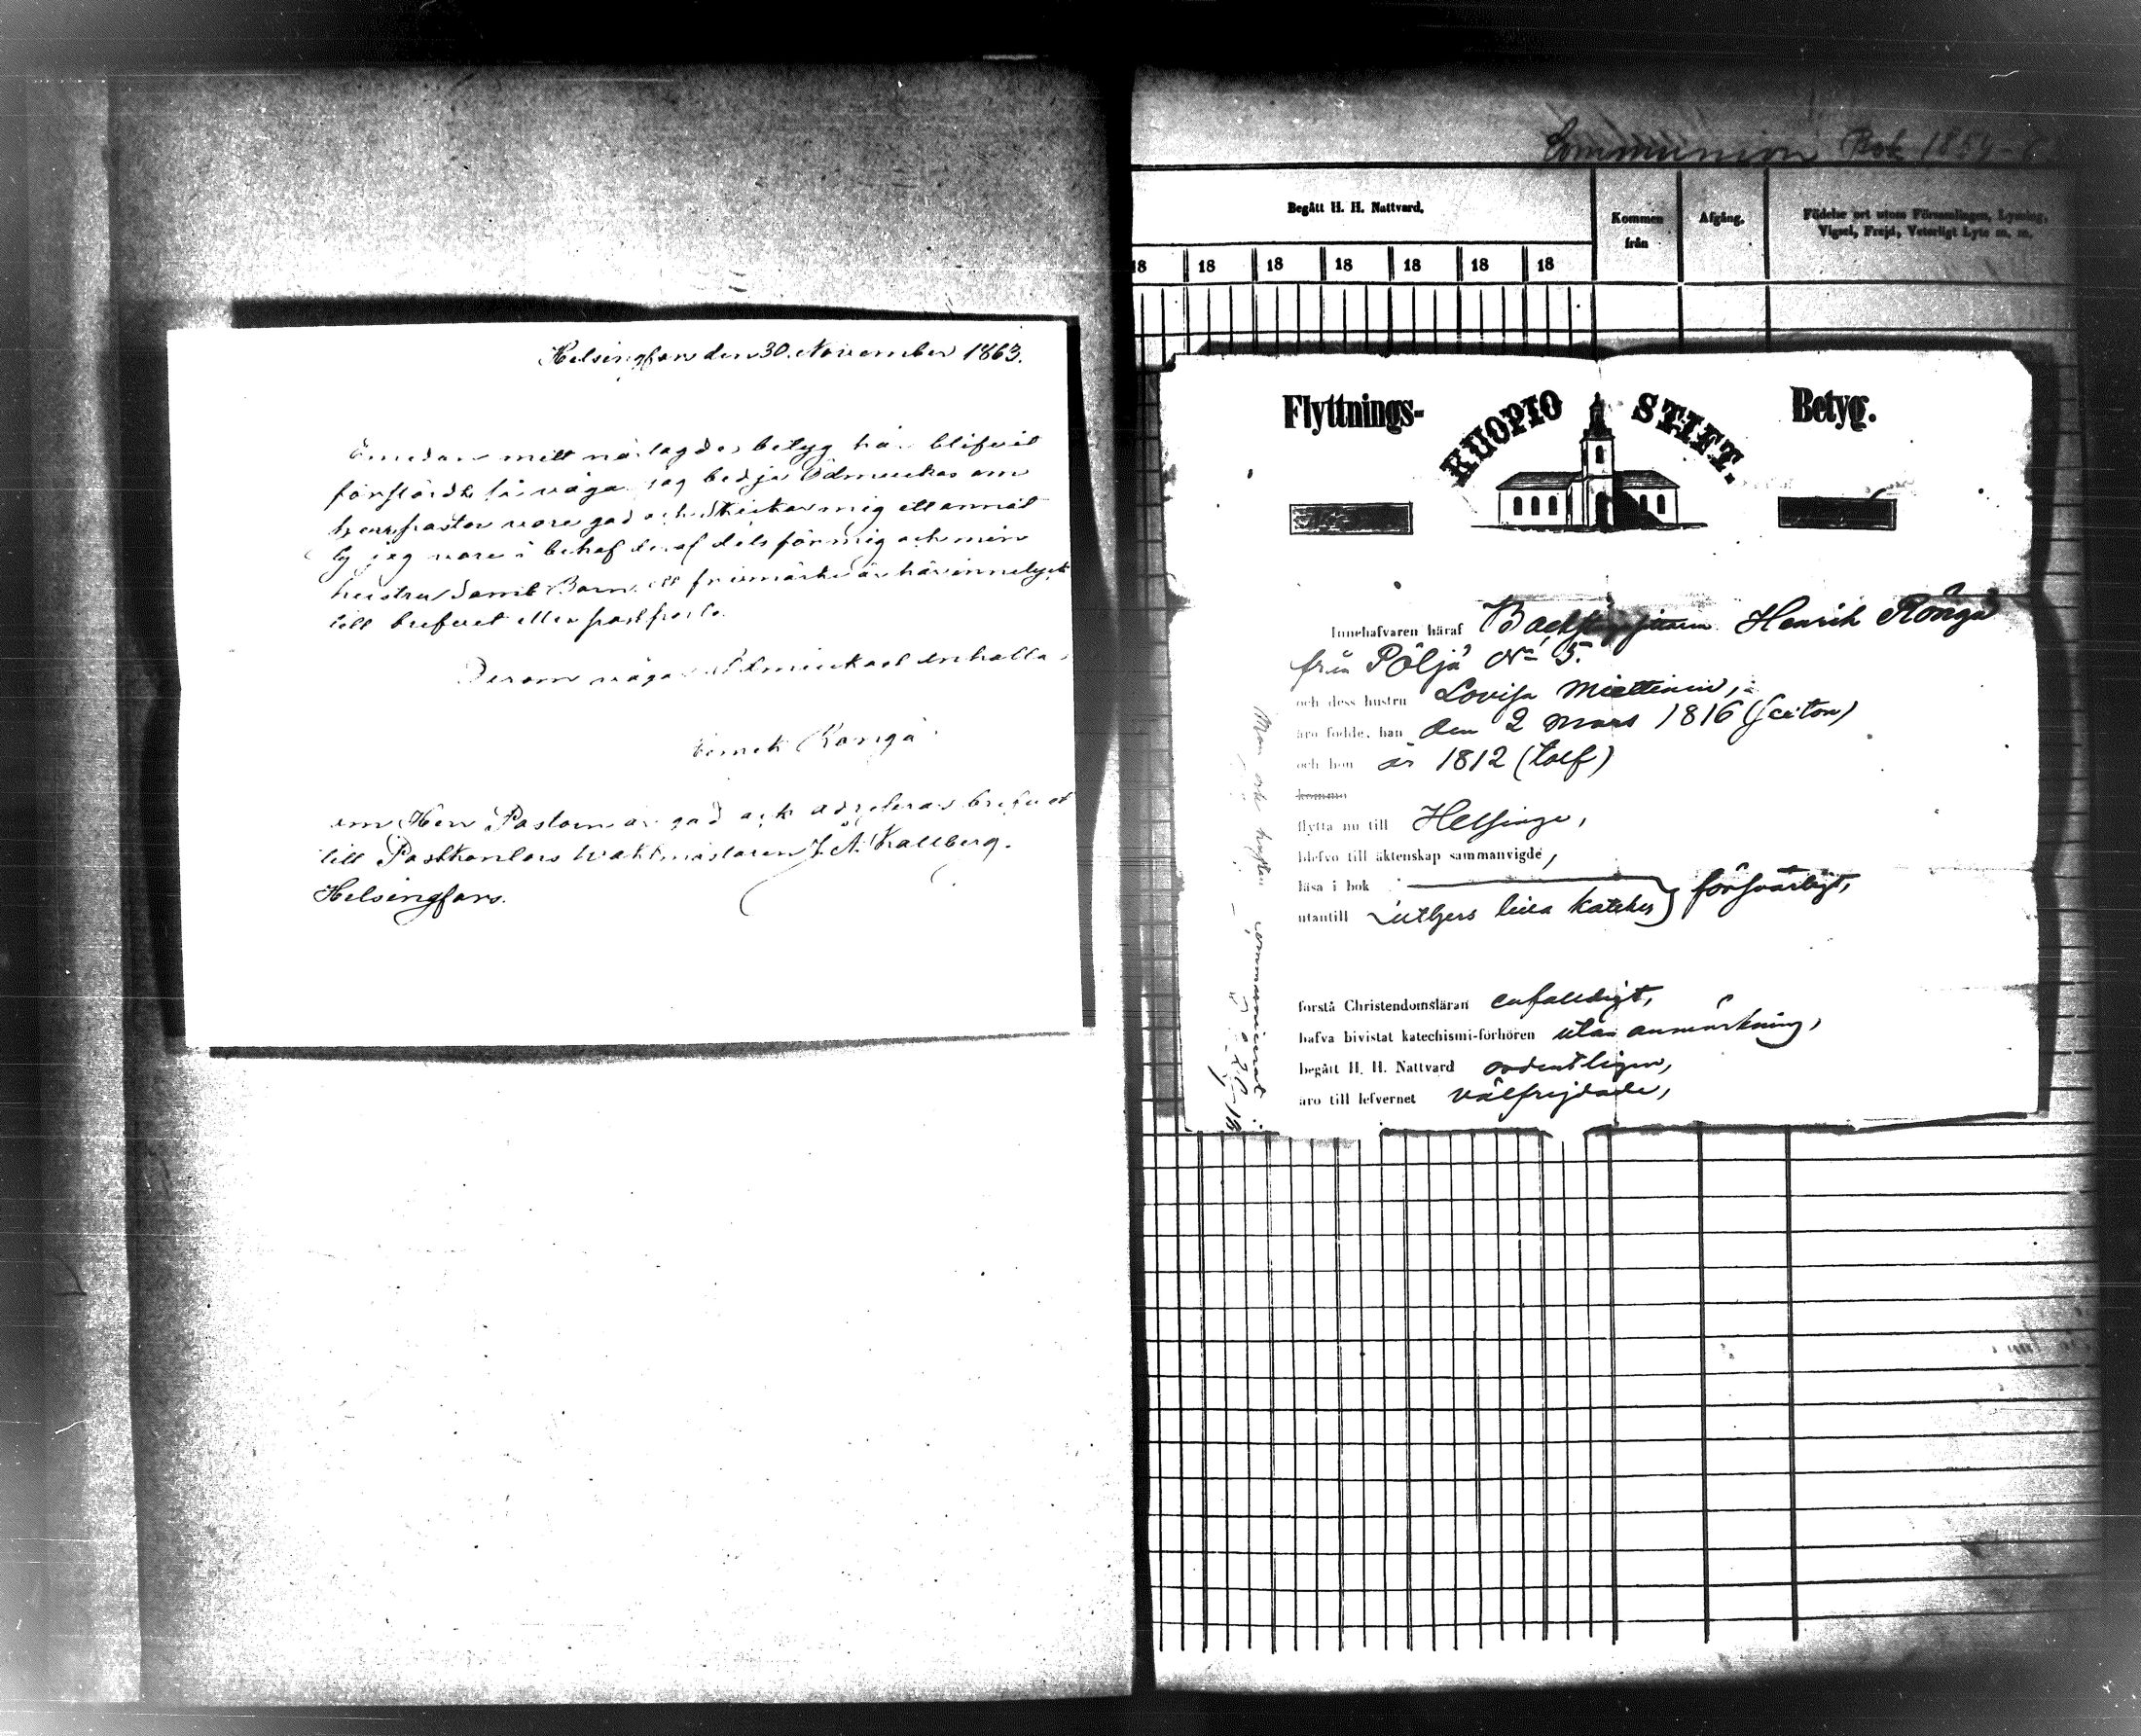 Helsingfors den 30. November 1863.
Emedan mitt betyg har blifvit
förstördt så vågar jag bedja Ödmiukas om
herr pastor vore god och skickar mig ett annat
ty jag vore i behof deraf dels för mig och min
hustru samt Barn. ett frimärke är här innelykt
till brefvet eller postporto.
Derom vågar Ödmiukast anhålla
Henrik Röngä
om Herr Pastorn är god och adresserar brefvet
till Postkontors Waktmästaren J. A. Kallberg.
Helsingfors.
Communion Bok 1854-
Begått H. H. Nattvard.
Kommen från
Afgång.
Födelse ort utom Församlingen, Lysning, Vigsel, Frejd, Veterligt Lyte m. m.
18 18 18 18 18 18 18
Flyttnings- KUOPIO STIFT. Betyg.
Innehafvaren häraf Henrik Röngä
från Pöljä No 5.
och dess hustru Lovisa Miettinen,
äro födde, han den 2 mars 1816 (sexton)
och hon år 1812 (tolf)
komma
flytta nu till Helsinge,
blefvo till äktenskap sammanvigde,
läsa i bok
utantill Luthers lilla Kateches } försvarligt,
förstå Christendomsläran enfalldigt,
hafva bivistat katechismi-förhören utan anmärkning,
begått H. H. Nattvard ordentligen,
äro till lefvernet välfrejdade,